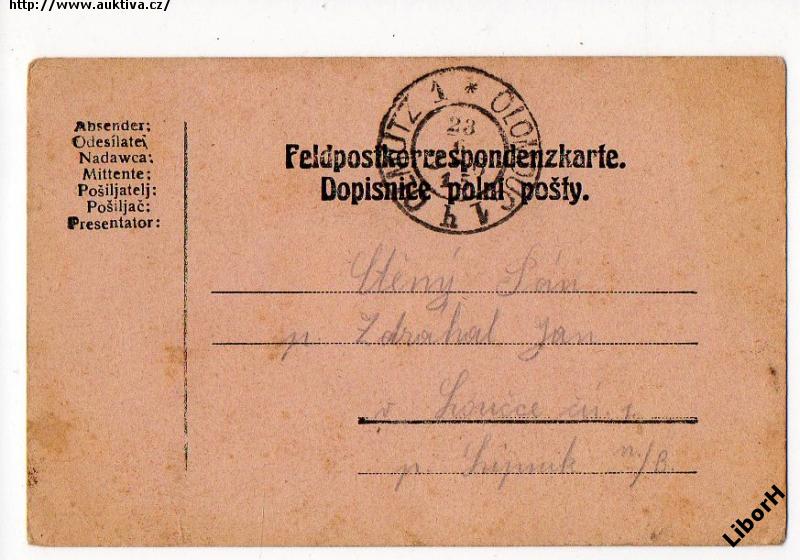 http://www.auktiva.cz/
Absender:
Odesílatel
Nadawca:
Mittente:
Pošiljatelj:
Pošiljač:
Presentator:
OLMÜTZ 1 * OLOMOUC 1
23
15
Feldpostkorrespondenzkarte.
Dopisnice polní pošty.
Ctěný Pán
p. Zdrahal Jan
v Loučce čís. 1.
p. Lipník n/B.
LiborH